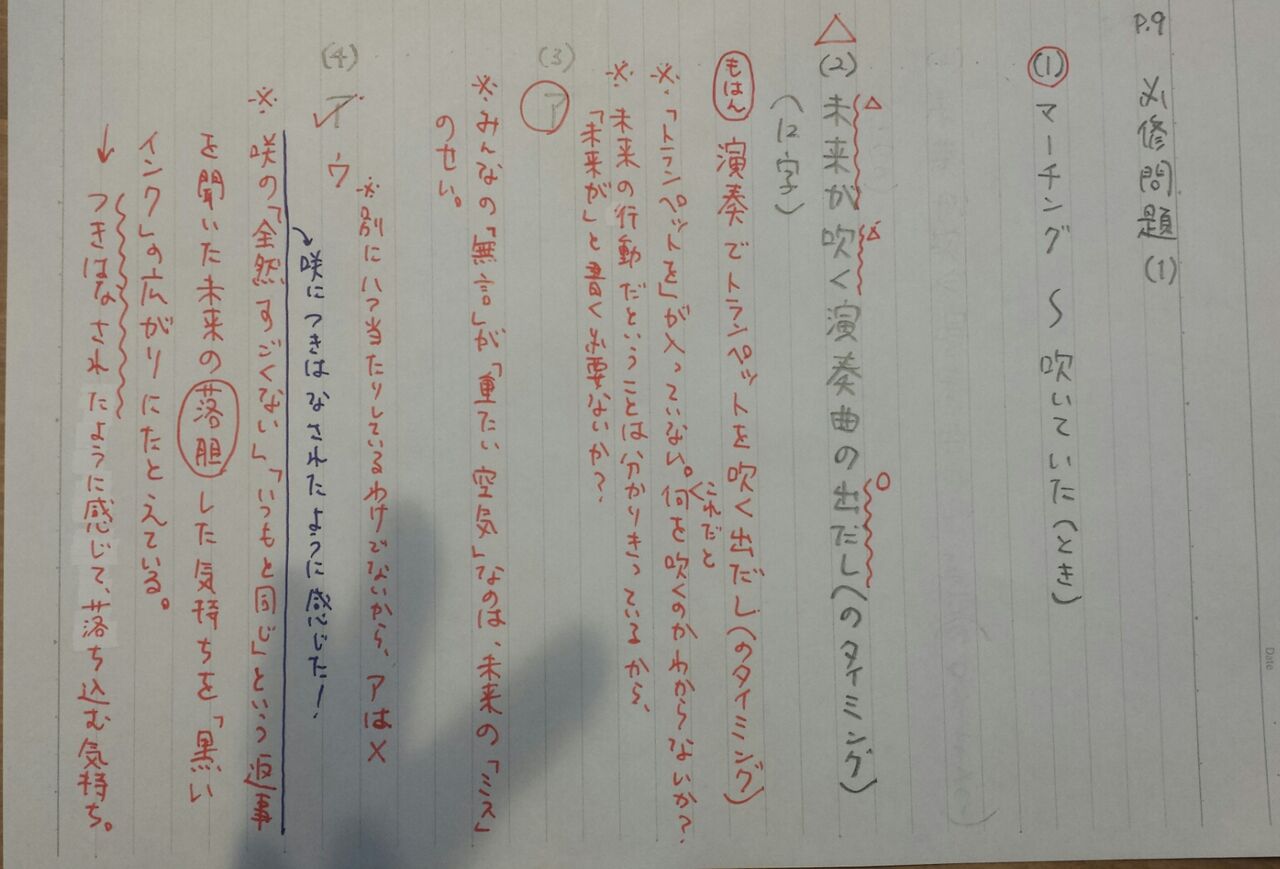 P.9 必修問題(1)
(1) マーチング 〜 吹いていた(とき)
(2) 未来が吹く演奏曲の出だし(のタイミング)
(12字)
もはん 演奏でトランペットを吹く出だし(のタイミング)
これだと
※・「トランペットを」が入っていない。何を吹くのかわからないか?
※ 未来の行動だということは分かりきっているから、
「未来が」と書く必要ないか?
(3) ア
※みんなの「無言」が「重たい空気」なのは、未来の「ミス」
のせい。
(4) ア ウ
※別に八つ当たりしているわけでないから、アは×
→咲につきはなされたように感じた!
※ 咲の「全然すごくない」「いつもと同じ」という返事
を聞いた未来の落胆した気持ちを「黒い
インク」の広がりにたとえている。
↓ つきはなされたように感じて、落ち込む気持ち。
Date